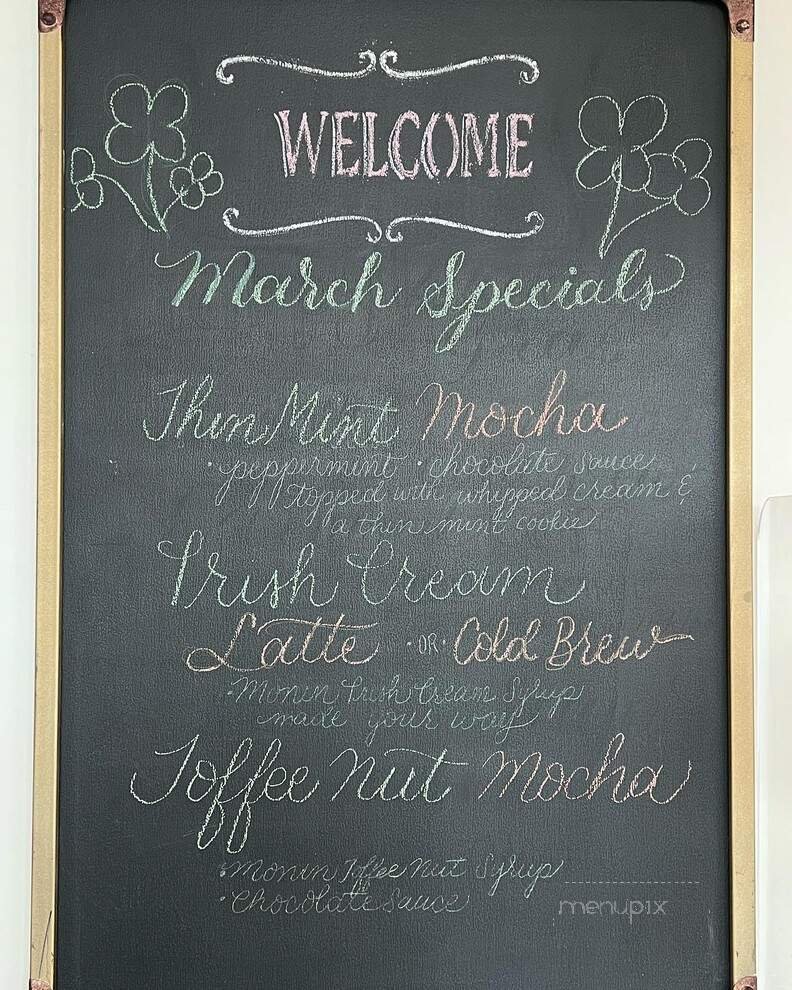 WELCOME
March Specials
Thin Mint Mocha
· peppermint · chocolate sauce
topped with whipped cream &
a thin mint cookie
Irish Cream
Latte · OR · Cold Brew
· Monin Irish Cream Syrup
made your way
Toffee Nut Mocha
· Monin Toffee Nut Syrup
· Chocolate Sauce
menupix